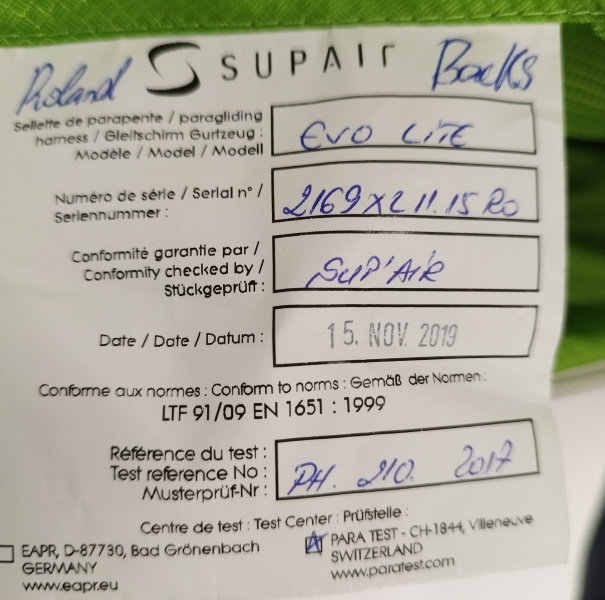 Roland SUPAIR Backs
Sellette de parapente / paragliding
harness / Gleitschirm Gurtzeug :
Modèle / Model / Modell
EVO LITE
Numéro de série / Serial n° /
Seriennummer :
2169X2 11.15 RO
Conformité garantie par /
Conformity checked by /
Stückgeprüft :
SUP'AIR
Date / Date / Datum : 15. NOV. 2019
Conforme aux normes : Conform to norms : Gemäß der Normen :
LTF 91/09 EN 1651 : 1999
Référence du test :
Test reference No :
Musterprüf-Nr :
PH. 210. 2017
Centre de test : Test Center : Prüfstelle :
EAPR, D-87730, Bad Grönenbach
GERMANY
www.eapr.eu
PARA TEST - CH-1844, Villeneuve
SWITZERLAND
www.paratest.com